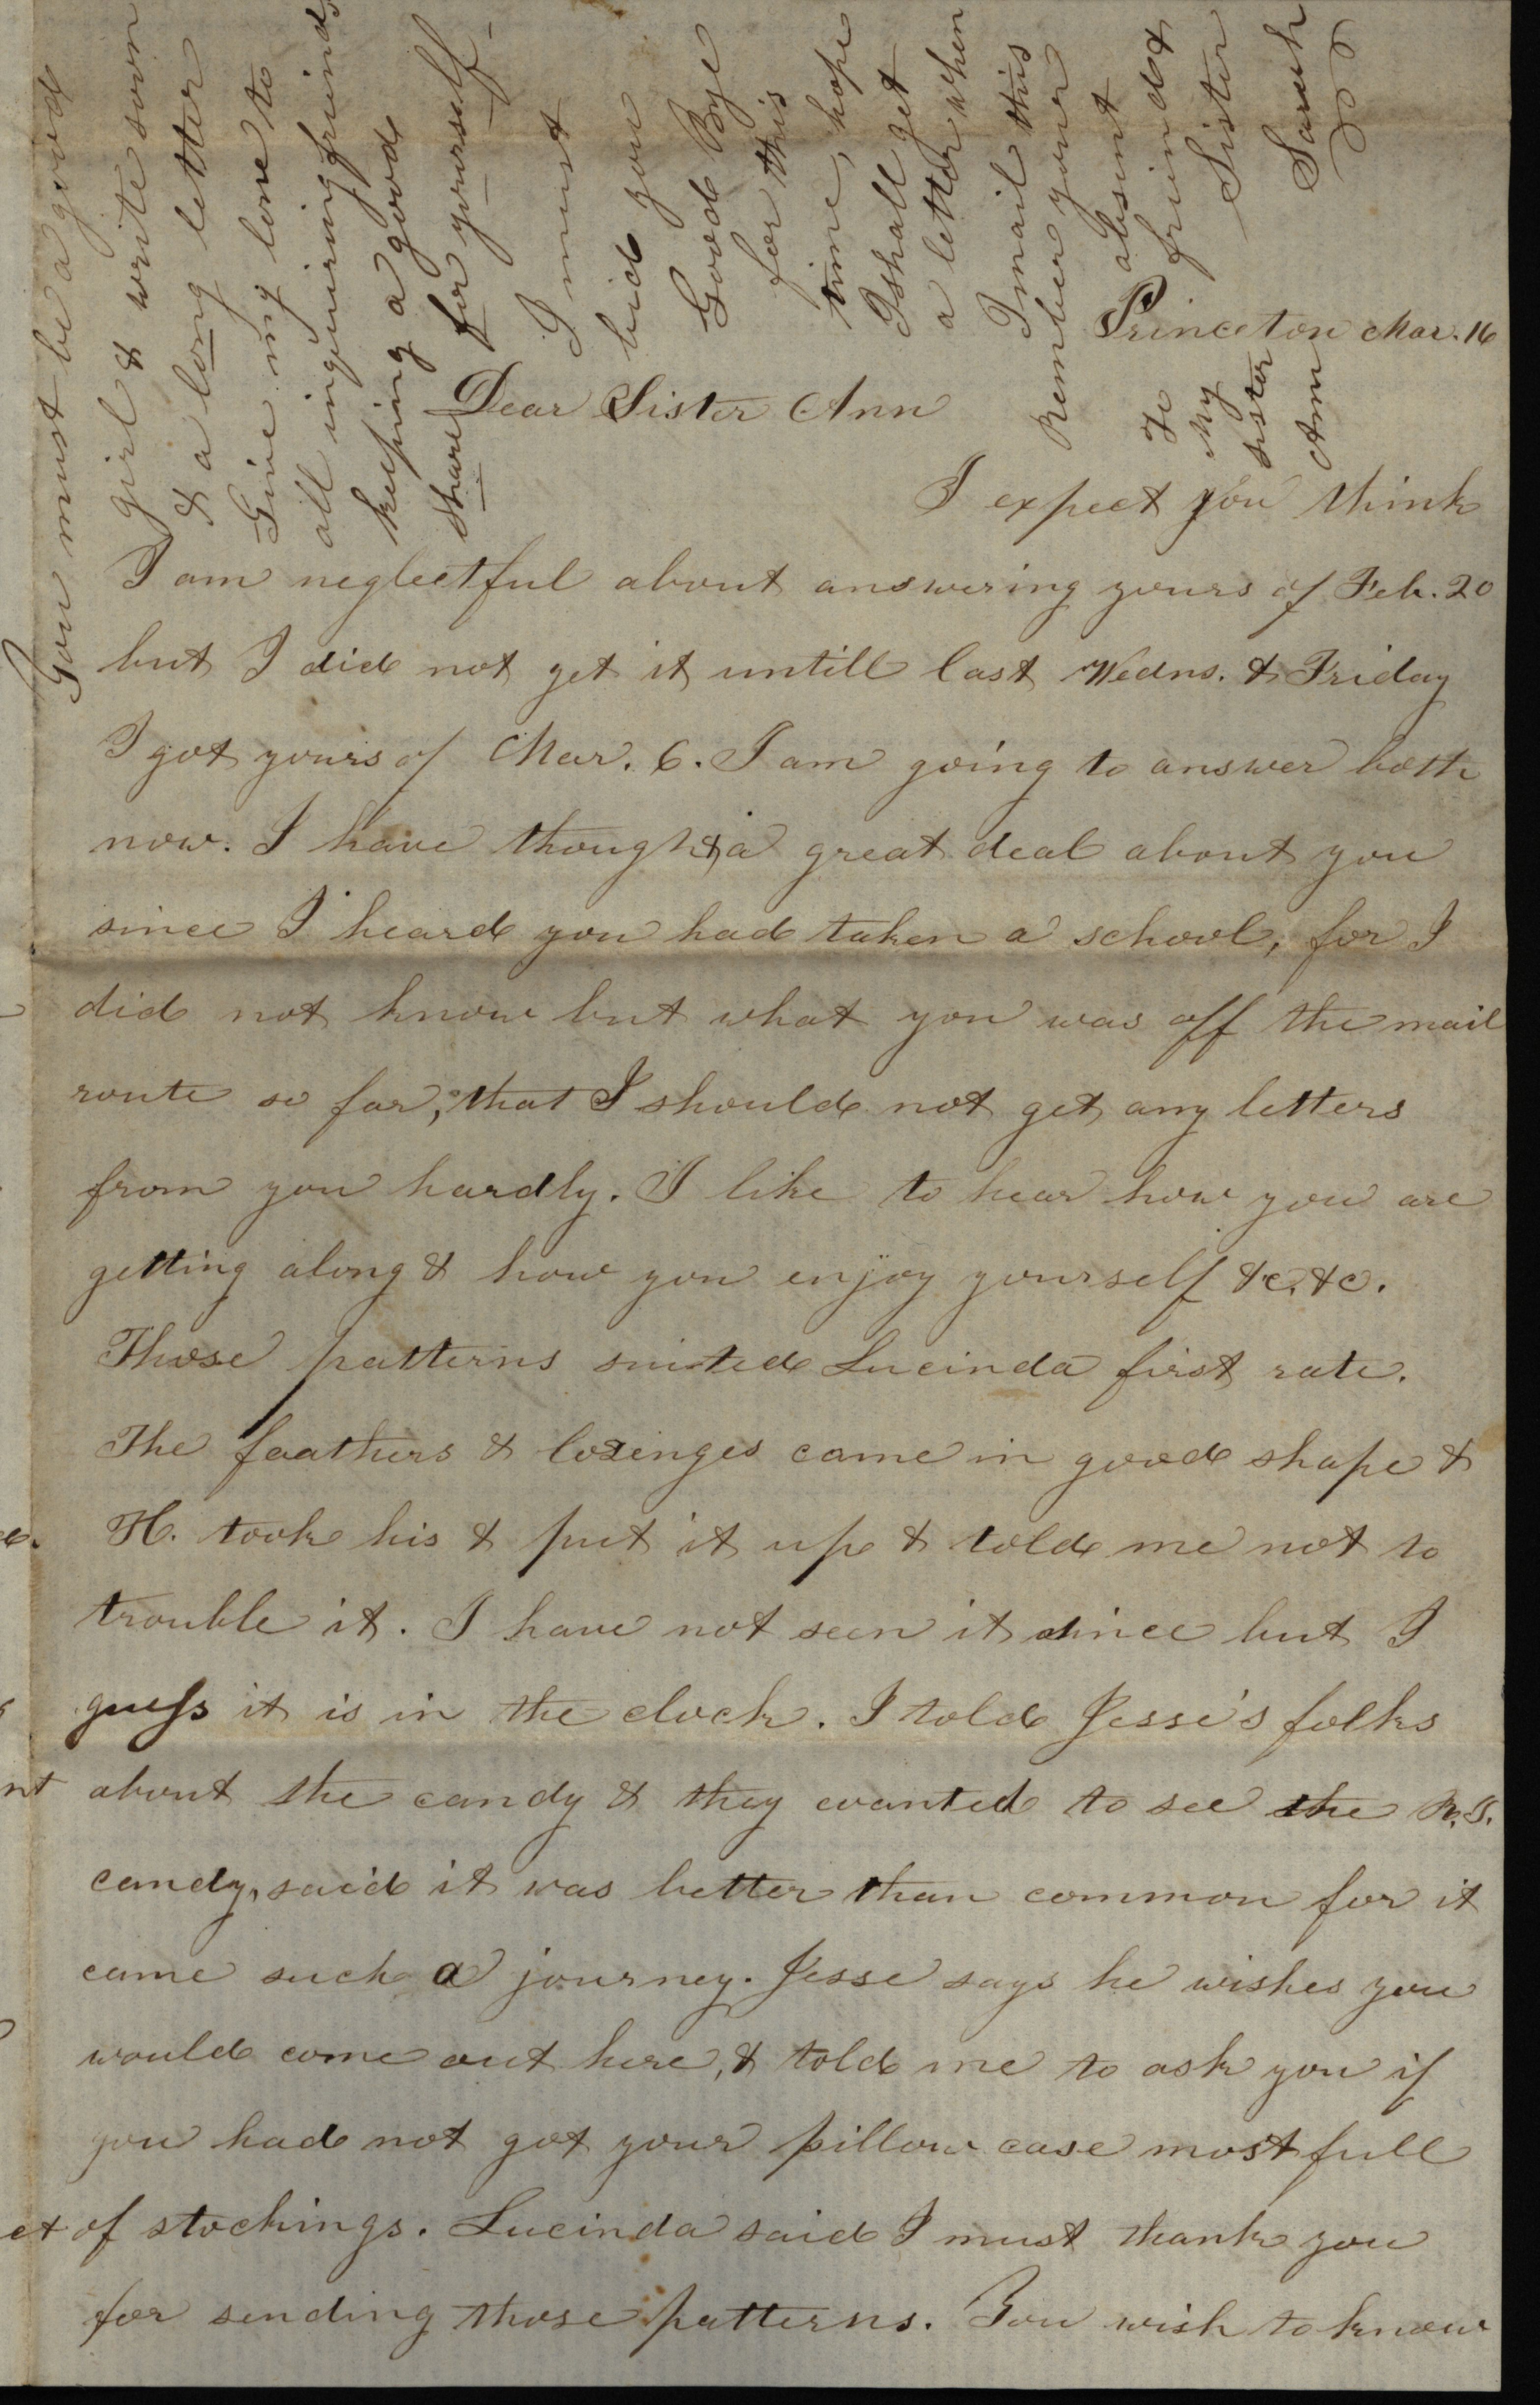 Princeton Mar. 16
Dear Sister Ann
I expect you think
I am neglectful about answering yours of Feb. 20
but I did not get it untill last Wedns. & Friday
I got yours of Mar. 6. I am going to answer both
now. I have thought a great deal about you
since I heard you had taken a school, for I
did not know but what you was off the mail
route so far, that I should not get any letters
from you hardly. I like to hear how you are
getting along & how you enjoy yourself &c. &c.
Those patterns suited Lucinda first rate.
The feathers & lozenges came in good shape &
H. took his & put it up & told me not to
trouble it. I have not seen it since but I
guess it is in the clock. I told Jesse's folks
about the candy & they wanted to see the
candy, said it was better than common for it
came such a journey. Jesse says he wishes you
would come out here, & told me to ask you if
you had not got your pillow case most full
of stockings. Lucinda said I must thank you
for sending those patterns. You wish to know
You must be a good
girl & write soon
& a long letter
Give my love to
all inquiring friends
keeping a good
share for yourself
I must
bid you
Good Bye
for this
time, hope
I shall get
a letter when
I mail this
Remember your
absent
friend &
Sister
Sarah
To
My
Sister
Ann
nt
et